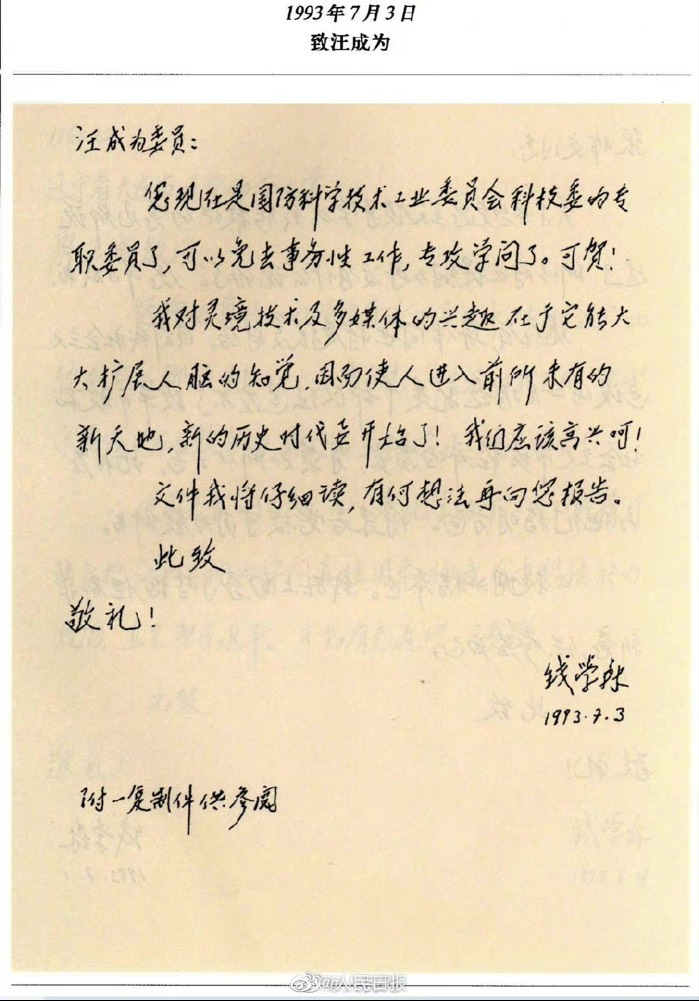 1993年7月3日
致汪成为
汪成为委员：
您现在是国防科学技术工业委员会科技委的专
职委员了，可以免去事务性工作，专攻学问了。可贺！
我对灵境技术及多媒体的兴趣在于它能大
大扩展人脑的知觉，因而使人进入前所未有的
新天地，新的历史时代要开始了！我们应该高兴呵！
文件我将仔细读，有何想法再向您报告。
此致
敬礼！
钱学森
1993.7.3
附一复制件供参阅
@人民日报